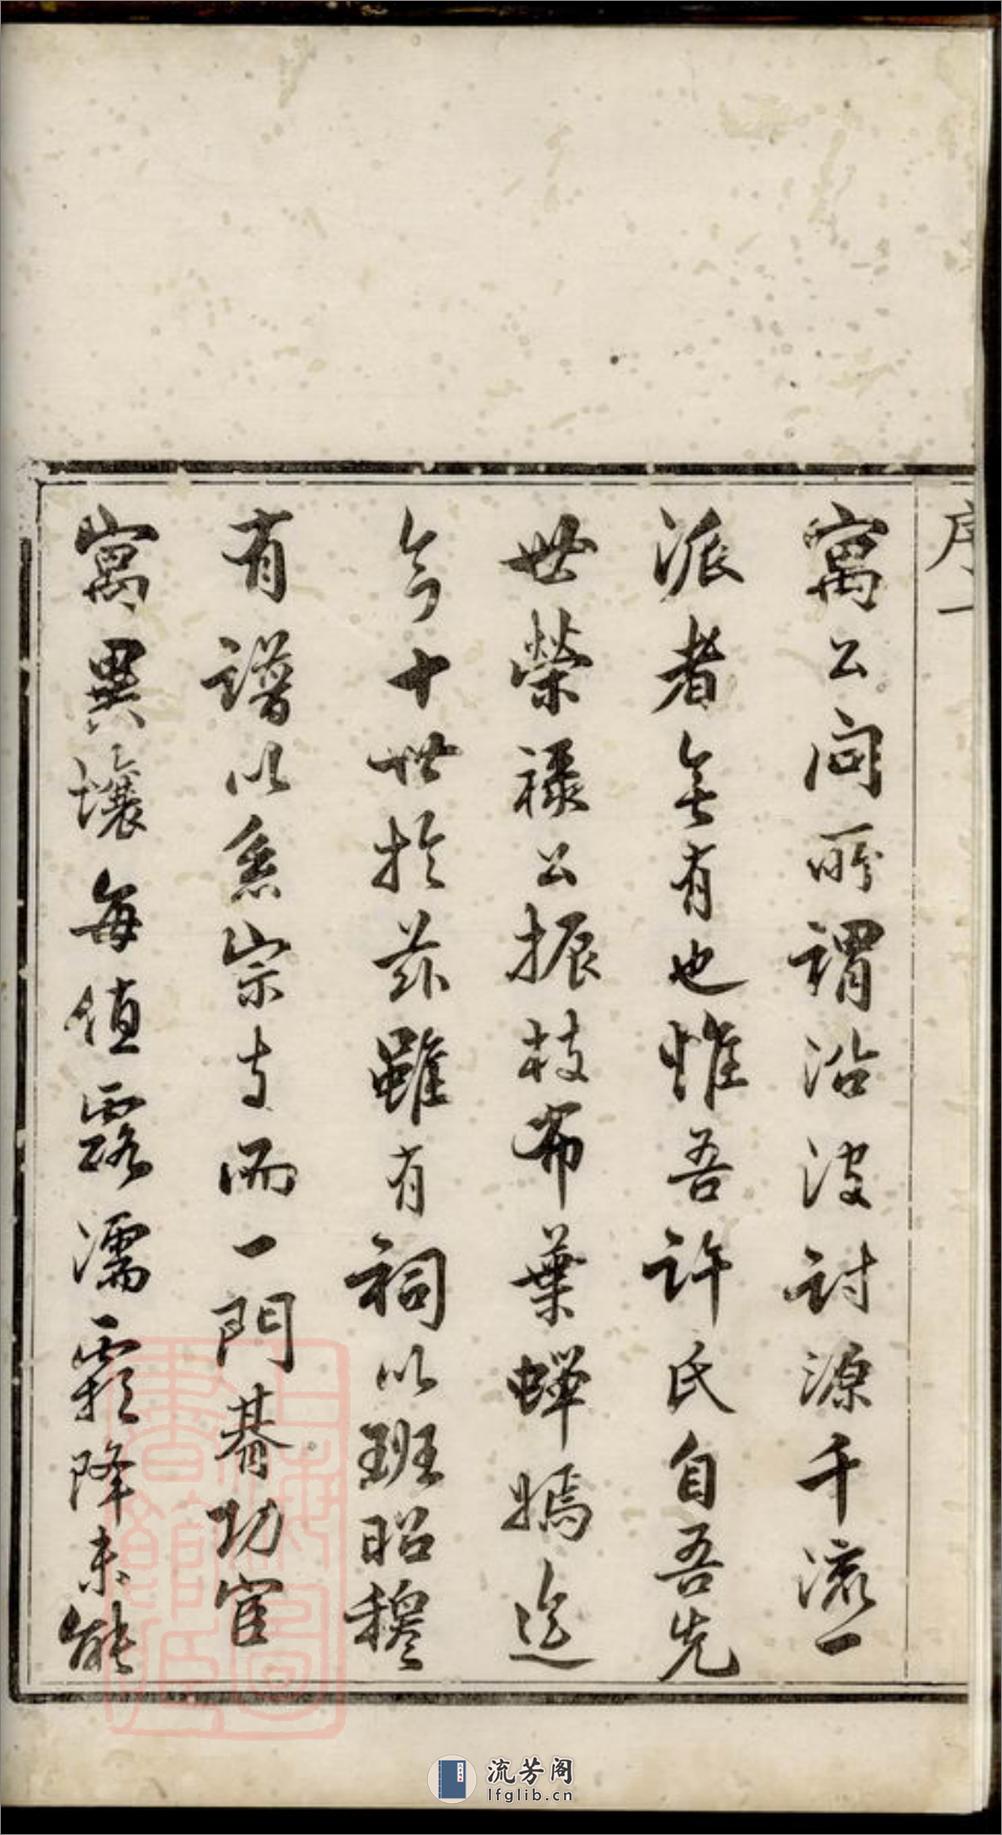 序一
寓公間所謂沿波討源千流一
派者無有也惟吾許氏自吾先
世榮祿公振枝布葉蟬嫣迄
今十世於茲雖有祠以班昭穆
有譜以系宗支而一門朞功宦
寓異壤每值露濡霜降未能
上海圖書館藏
流芳阁
lfglib.cn